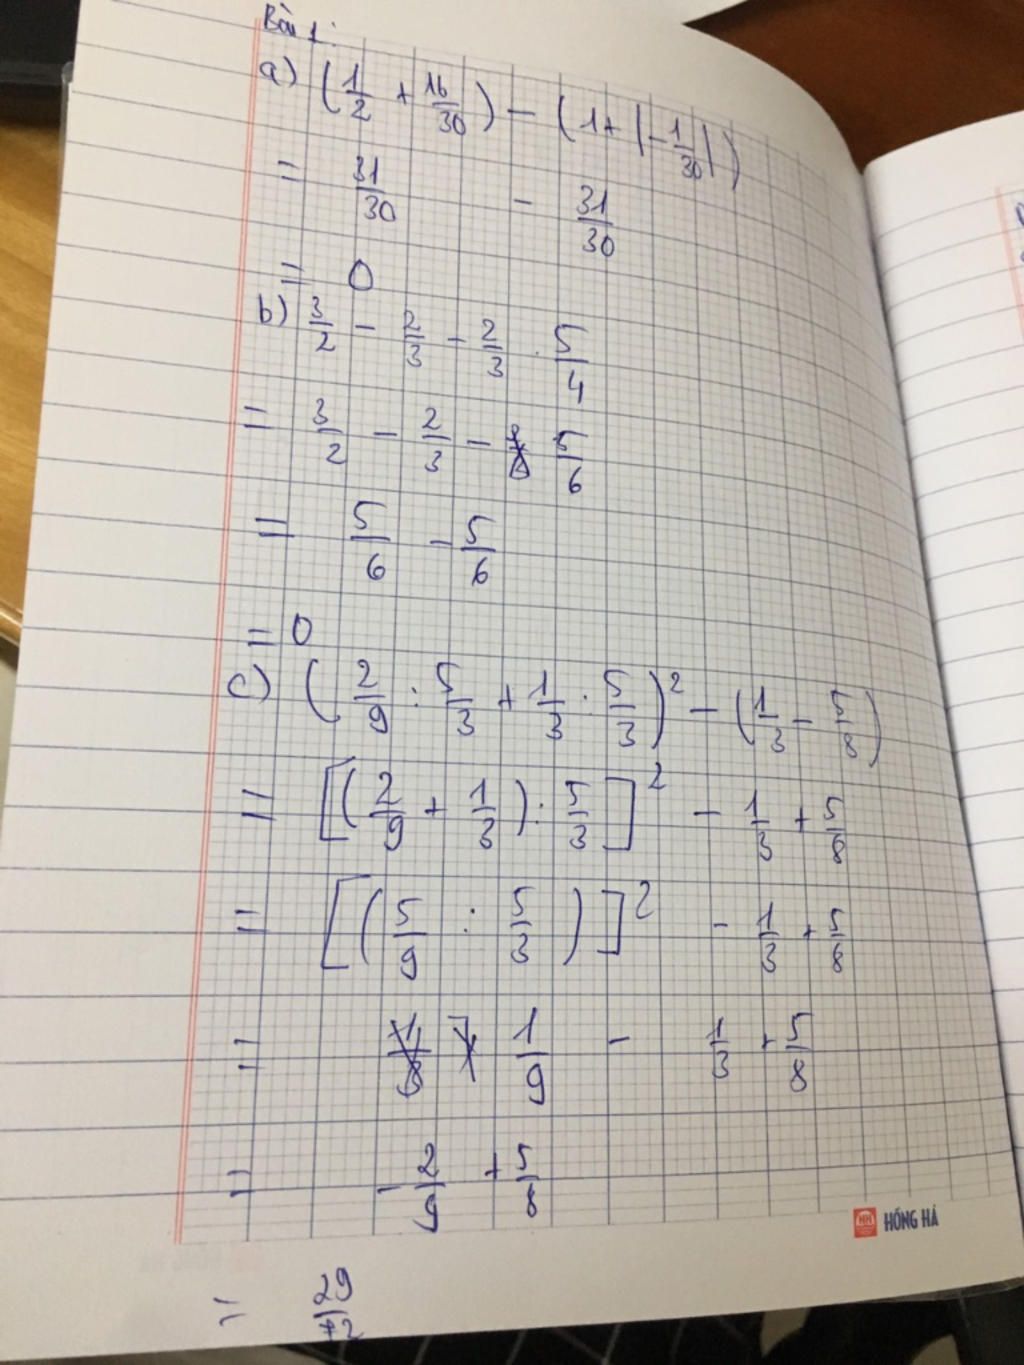 Bài 1:
a) (1/2 + 16/30) - (1 + |-1/30|)
= 31/30 - 31/30
= 0
b) 3/2 - 2/3 - 2/3 . 5/4
= 3/2 - 2/3 - 5/6
= 5/6 - 5/6
= 0
c) (2/9 : 5/3 + 1/3 : 5/3)² - (1/3 - 5/8)
= [(2/9 + 1/3) : 5/3]² - 1/3 + 5/8
= [(5/9 : 5/3)]² - 1/3 + 5/8
= 1/9 - 1/3 + 5/8
= -2/9 + 5/8
HH HỒNG HÀ
= 29/72